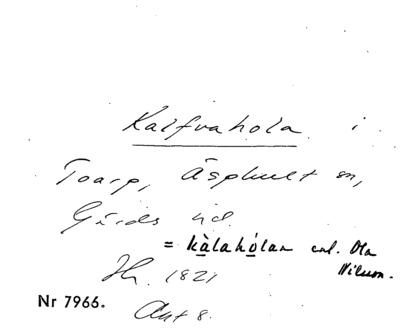 Kalfvahola i
Toarp, Äsphult sn,
Gärds hd.
= kàlahólan enl. Ola
Nilsson.
Hh. 1821
Akt 8.
Nr 7966.